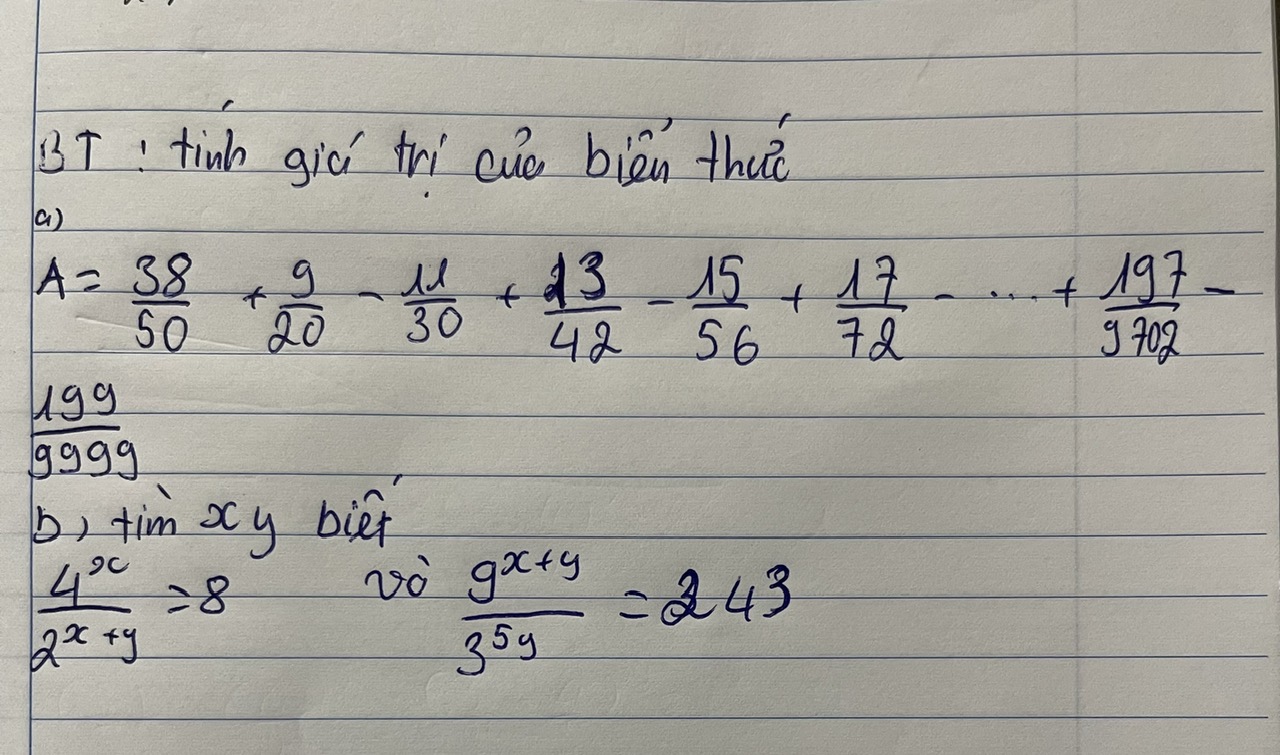 BT : tính giá trị của biến thức
a)
A = 38/50 + 9/20 - 11/30 + 13/42 - 15/56 + 17/72 - ... + 197/9702 -
199/9999
b, tìm x y biết
4^x/2^(x+y) = 8 và 9^(x+y)/3^(5y) = 243